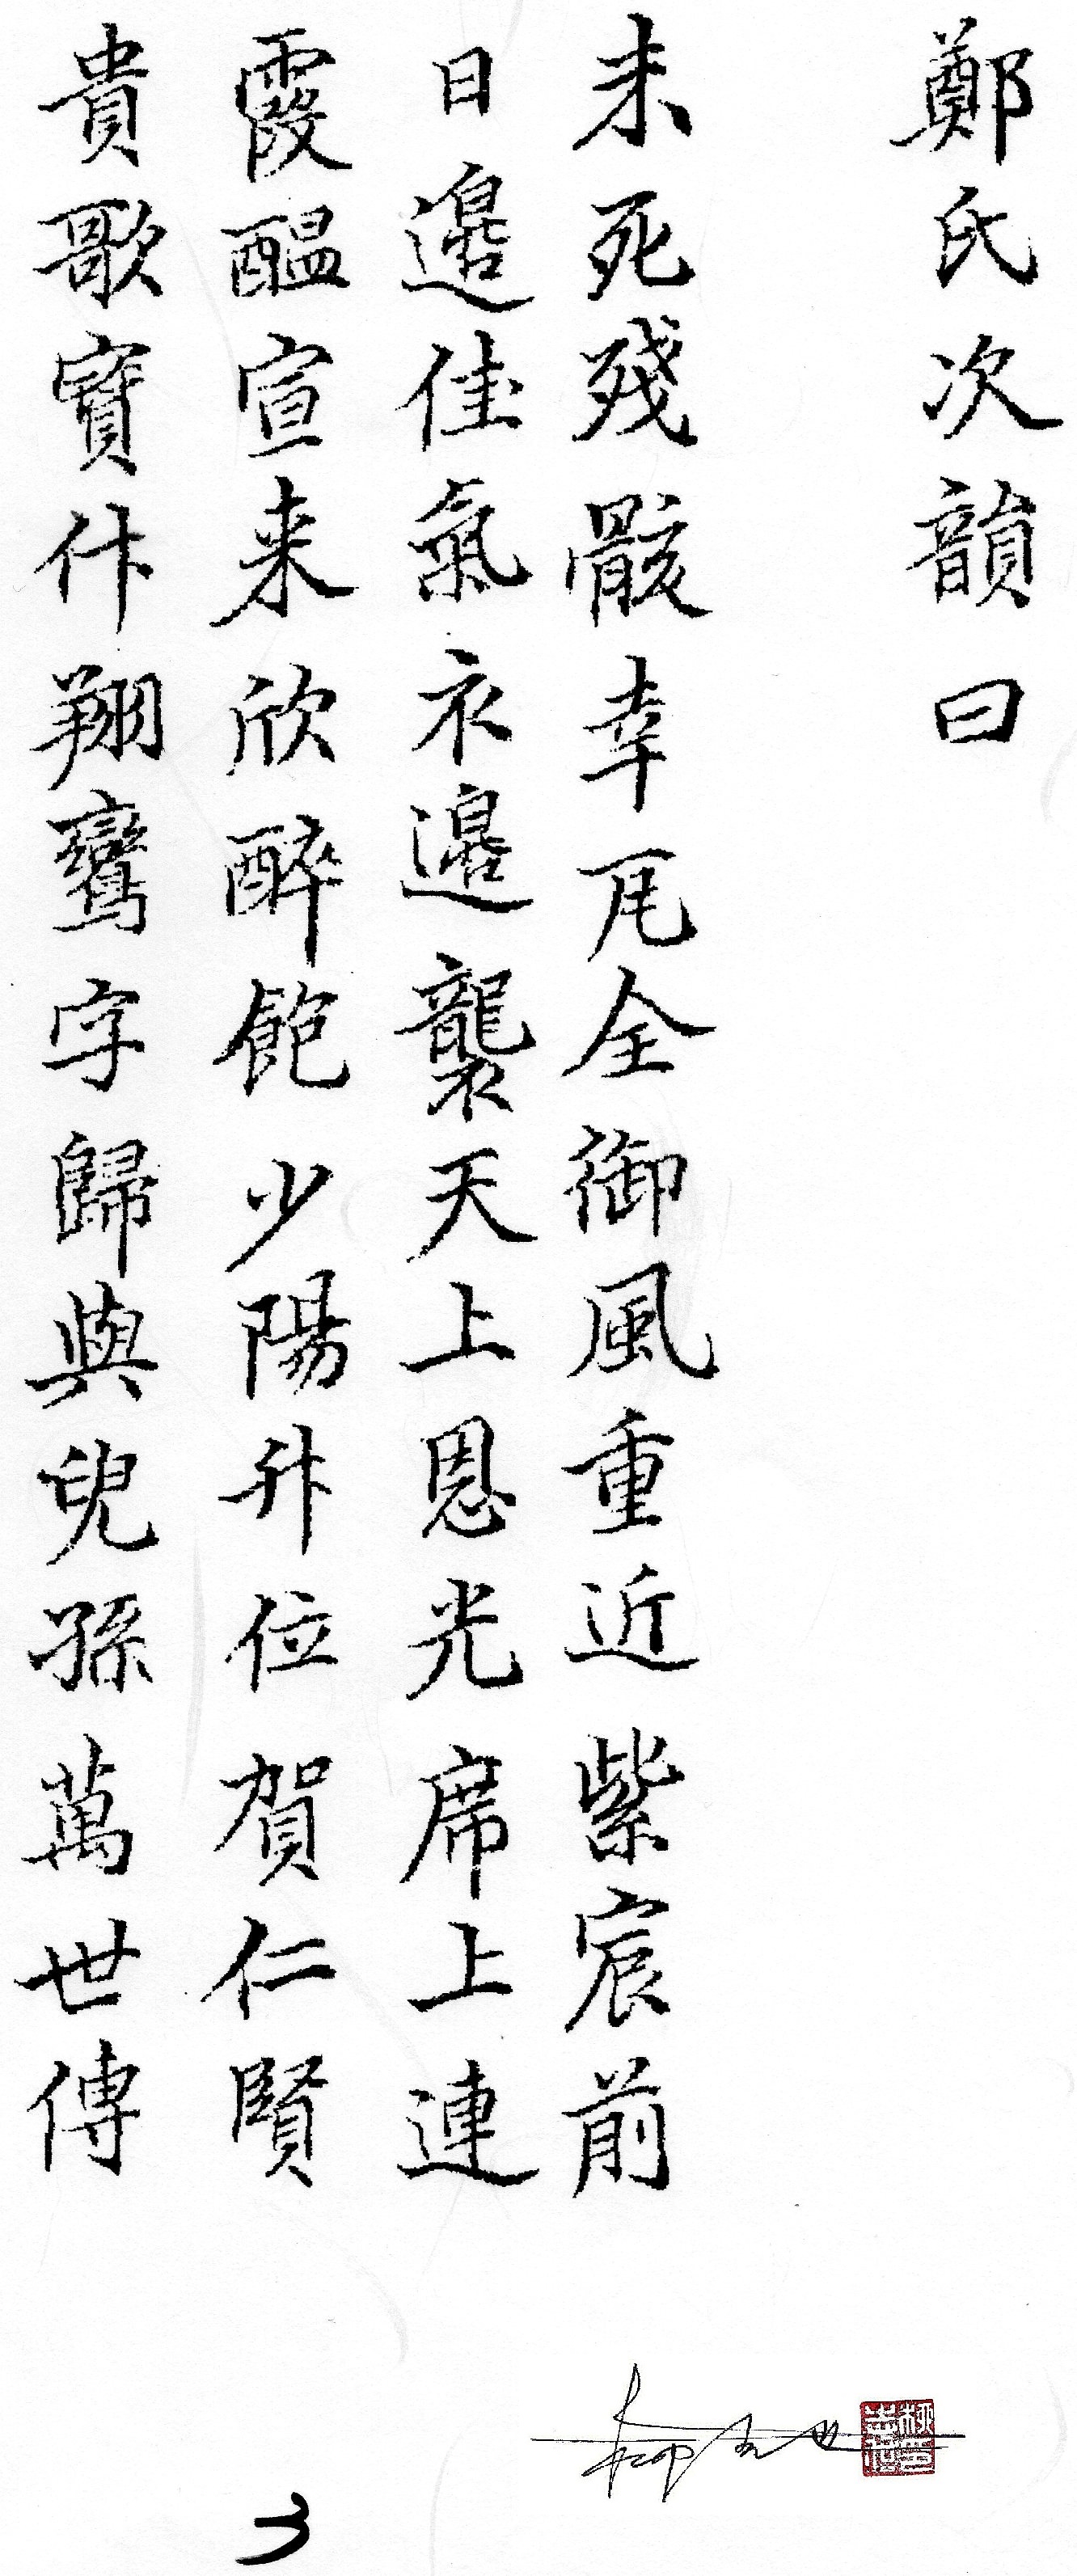 鄭氏次韻曰
未死殘骸幸瓦全御風重近紫宸前
日邊佳氣衣邊襲天上恩光席上連
霞醖宣来欣醉飽少陽升位賀仁賢
貴歌寶什翔鸞字歸與兒孫萬世傳